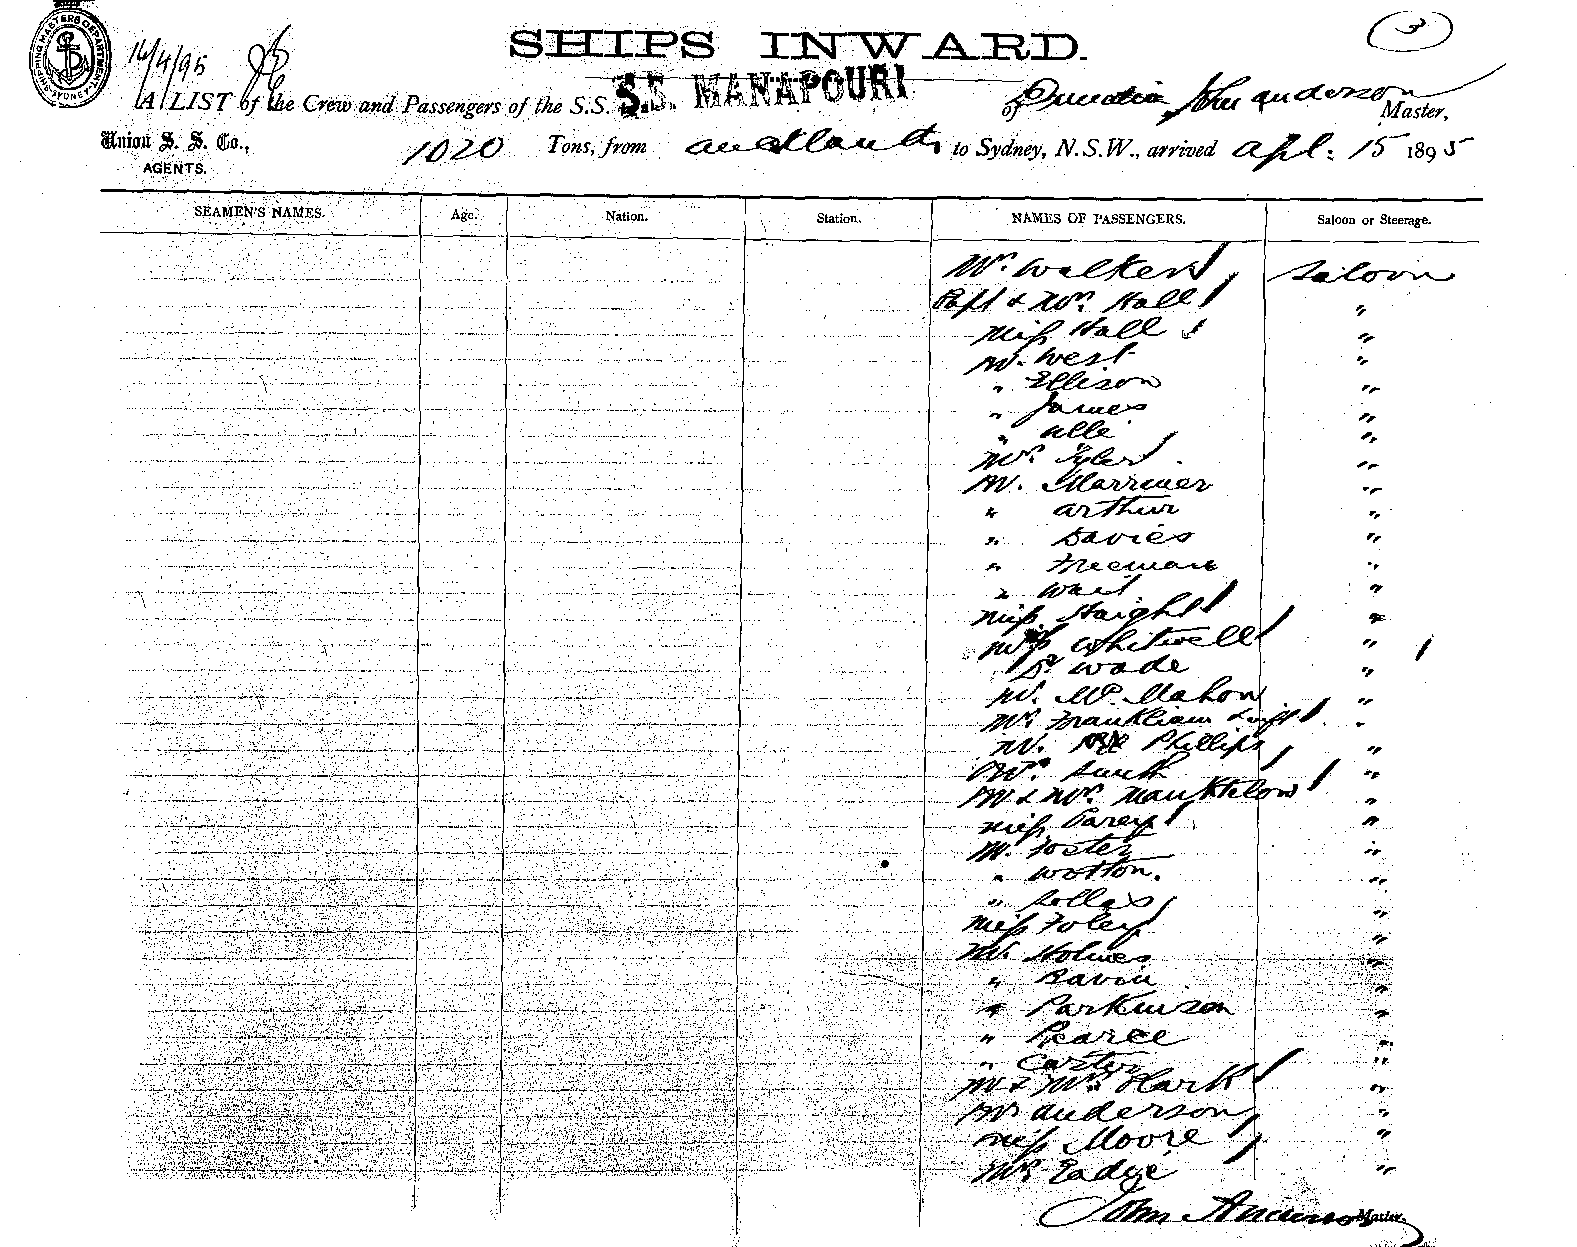 SHIPS INWARD.
3
16/4/95
A LIST of the Crew and Passengers of the S.S. S.S. MANAPOURI of Dunedin John Anderson Master,
Union S. S. Co.,
AGENTS.
1020 Tons, from Auckland to Sydney, N.S.W., arrived Apl: 15 1895
SEAMEN'S NAMES. Age. Nation. Station. NAMES OF PASSENGERS. Saloon or Steerage.
Walker Saloon
Capt & Mrs. Hall "
Miss Hall "
Mr. West "
" Ellison "
" James "
" "
Mrs. Tyler "
Mr. Marriner "
" Arthur "
" Davies "
" Freeman "
" "
Miss Haight "
Whitwell "
Dr. Wade "
Mr. McMahon "
Mrs. "
Mr. Phillips "
Mrs. Smith "
Mr & Mrs. "
Miss Carey "
Mr. Foster "
" Wotton. "
" "
Miss Foley "
Mr. Holmes "
" Bavin "
" Parkinson "
" Pearce "
" Carter "
Mr & Mrs. "
Mr Anderson "
Miss Moore "
Eadye "
John Anderson Master.